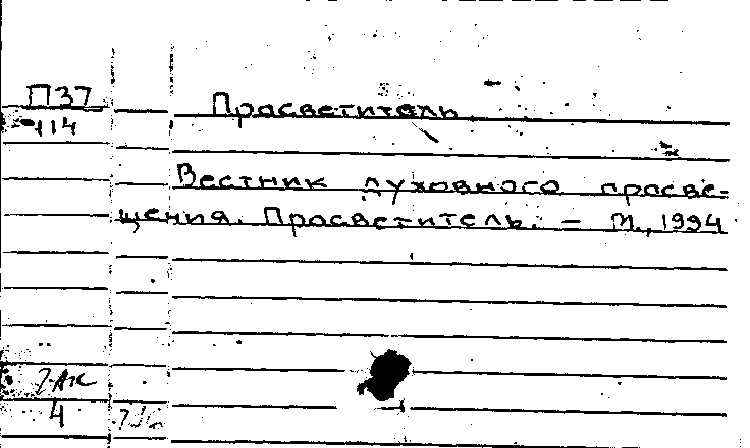 П37
114
Просветитель
Вестник духовного просве-
щения. Просветитель. – М., 1994
4